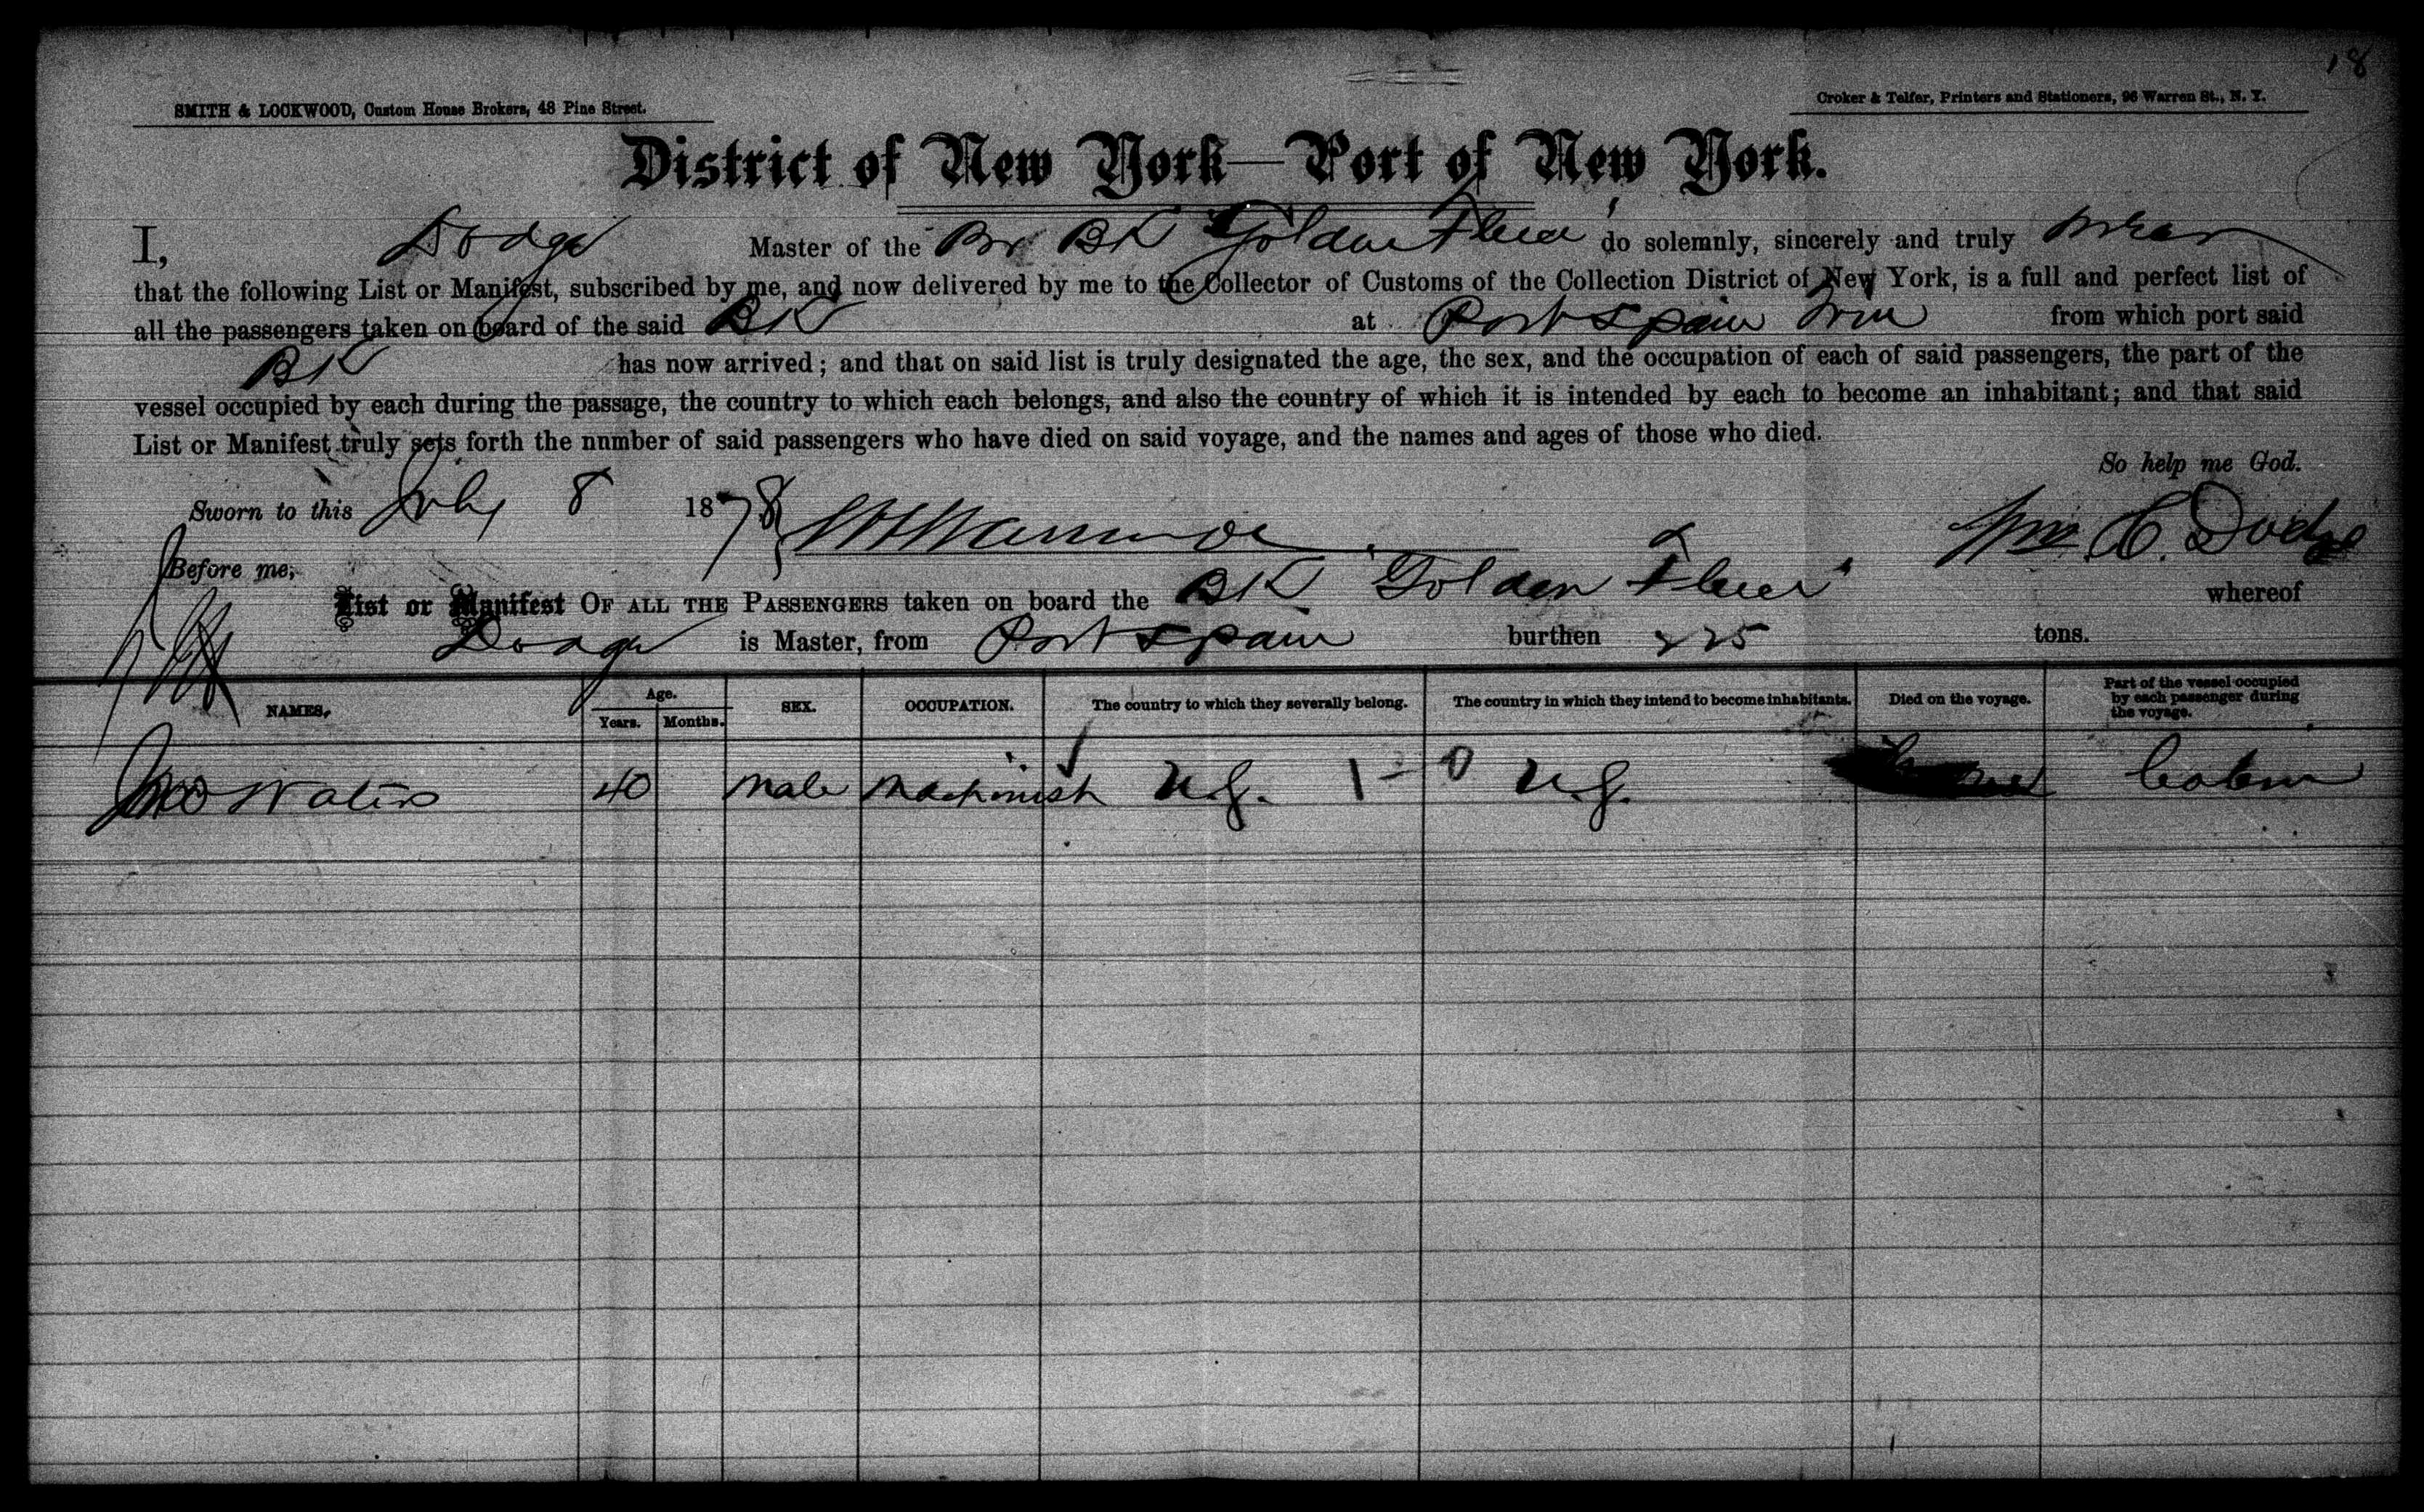 18
SMITH & LOCKWOOD, Custom House Brokers, 48 Pine Street.
Croker & Telfer, Printers and Stationers, 96 Warren St., N. Y.
District of New York—Port of New York.
I, Dodge Master of the Br BK Golden Fleece do solemnly, sincerely and truly swear
that the following List or Manifest, subscribed by me, and now delivered by me to the Collector of Customs of the Collection District of New York, is a full and perfect list of
all the passengers taken on board of the said BK at Port Spain Trin from which port said
BK has now arrived; and that on said list is truly designated the age, the sex, and the occupation of each of said passengers, the part of the
vessel occupied by each during the passage, the country to which each belongs, and also the country of which it is intended by each to become an inhabitant; and that said
List or Manifest truly sets forth the number of said passengers who have died on said voyage, and the names and ages of those who died.
So help me God.
Sworn to this July 8 1878 Wm C. Dodge
Before me,
List or Manifest OF ALL THE PASSENGERS taken on board the BK Golden Fleece whereof
Dodge is Master, from Port Spain burthen 225 tons.
NAMES. Age. Years. Months. SEX. OCCUPATION. The country to which they severally belong. The country in which they intend to become inhabitants. Died on the voyage. Part of the vessel occupied by each passenger during the voyage.
Jno Waters 40 Male Machinist U.S. 1-0 U.S. Cabin